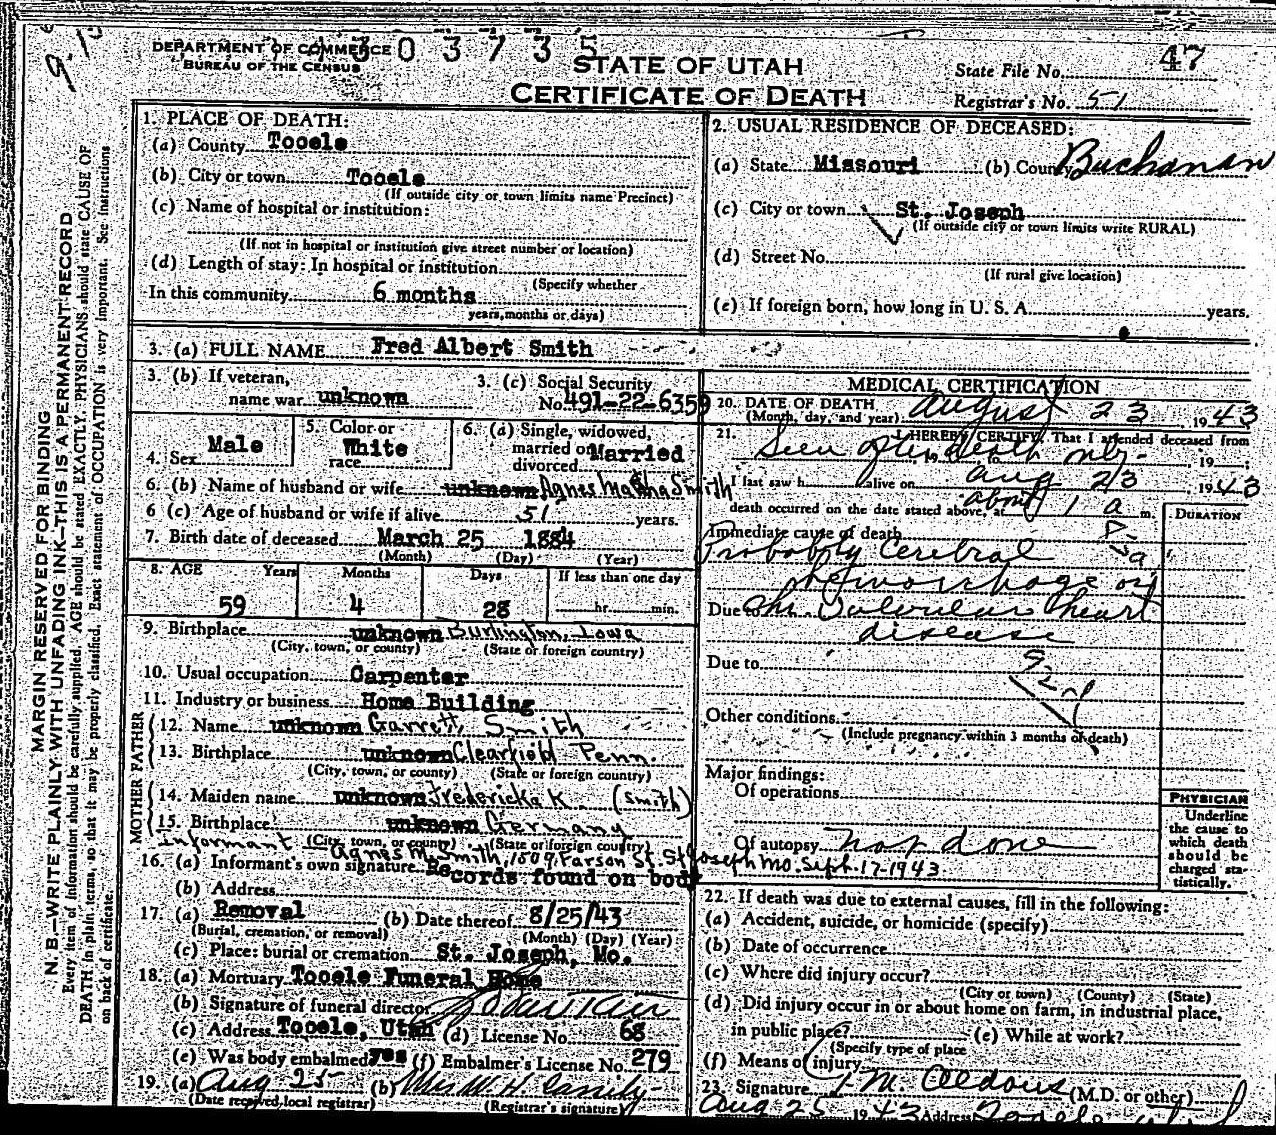 DEPARTMENT OF COMMERCE
BUREAU OF THE CENSUS
4303735
STATE OF UTAH
CERTIFICATE OF DEATH
State File No. 47
Registrar's No. 51
MARGIN RESERVED FOR BINDING
N. B.—WRITE PLAINLY WITH UNFADING INK—THIS IS A PERMANENT RECORD
Every item of information should be carefully supplied. AGE should be stated EXACTLY. PHYSICIANS should state CAUSE OF
DEATH in plain terms, so that it may be properly classified. Exact statement of OCCUPATION is very important. See instructions
on back of certificate.
1. PLACE OF DEATH:
(a) County Tooele
(b) City or town Tooele
(If outside city or town limits name Precinct)
(c) Name of hospital or institution:
(If not in hospital or institution give street number or location)
(d) Length of stay: In hospital or institution
(Specify whether
In this community 6 months
years, months or days)
2. USUAL RESIDENCE OF DECEASED:
(a) State Missouri (b) County Buchanan
(c) City or town St. Joseph
(If outside city or town limits write RURAL)
(d) Street No.
(If rural give location)
(e) If foreign born, how long in U. S. A. years.
3. (a) FULL NAME Fred Albert Smith
3. (b) If veteran, name war unknown
3. (c) Social Security No. 491-22-6359
4. Sex Male
5. Color or race White
6. (a) Single, widowed, married or divorced Married
6. (b) Name of husband or wife unknown Agnes Martha Smith
6 (c) Age of husband or wife if alive 51 years.
7. Birth date of deceased March 25 1884
(Month) (Day) (Year)
8. AGE Years Months Days If less than one day
59 4 28 hr. min.
9. Birthplace unknown Burlington, Iowa
(City, town, or county) (State or foreign country)
10. Usual occupation Carpenter
11. Industry or business Home Building
FATHER
12. Name unknown Garrett Smith
13. Birthplace unknown Clearfield Penn.
(City, town, or county) (State or foreign country)
MOTHER
14. Maiden name unknown Fredericka K. (Smith)
15. Birthplace unknown Germany
(City, town, or county) (State or foreign country)
Informant Agnes M. Smith, 1509 Farson St. St Joseph Mo. Sept. 17-1943
16. (a) Informant's own signature Records found on body
(b) Address
17. (a) Removal (b) Date thereof 8/25/43
(Burial, cremation, or removal) (Month) (Day) (Year)
(c) Place: burial or cremation St. Joseph, Mo.
18. (a) Mortuary Tooele Funeral Home
(b) Signature of funeral director
(c) Address Tooele, Utah (d) License No. 68
(e) Was body embalmed yes (f) Embalmer's License No. 279
19. (a) Aug 25 (b) Mrs W. H.
(Date received local registrar) (Registrar's signature)
MEDICAL CERTIFICATION
20. DATE OF DEATH
(Month, day, and year) August 23 1943
21. I HEREBY CERTIFY, That I attended deceased from
Seen after death only - 19 to 19
I last saw h alive on Aug 23 1943
death occurred on the date stated above, at about 1 a m.
DURATION
Immediate cause of death
Probably Cerebral
hemorrhage or
Due to chr. Valvular heart
disease
Due to
92
Other conditions
(Include pregnancy within 3 months of death)
Major findings:
Of operations
Of autopsy not done
PHYSICIAN
Underline
the cause to
which death
should be
charged sta-
tistically.
22. If death was due to external causes, fill in the following:
(a) Accident, suicide, or homicide (specify)
(b) Date of occurrence
(c) Where did injury occur?
(City or town) (County) (State)
(d) Did injury occur in or about home on farm, in industrial place,
in public place? (e) While at work?
(Specify type of place
(f) Means of injury
23. Signature J. M. Aldous (M.D. or other)
Aug 25 1943 Address Tooele Utah